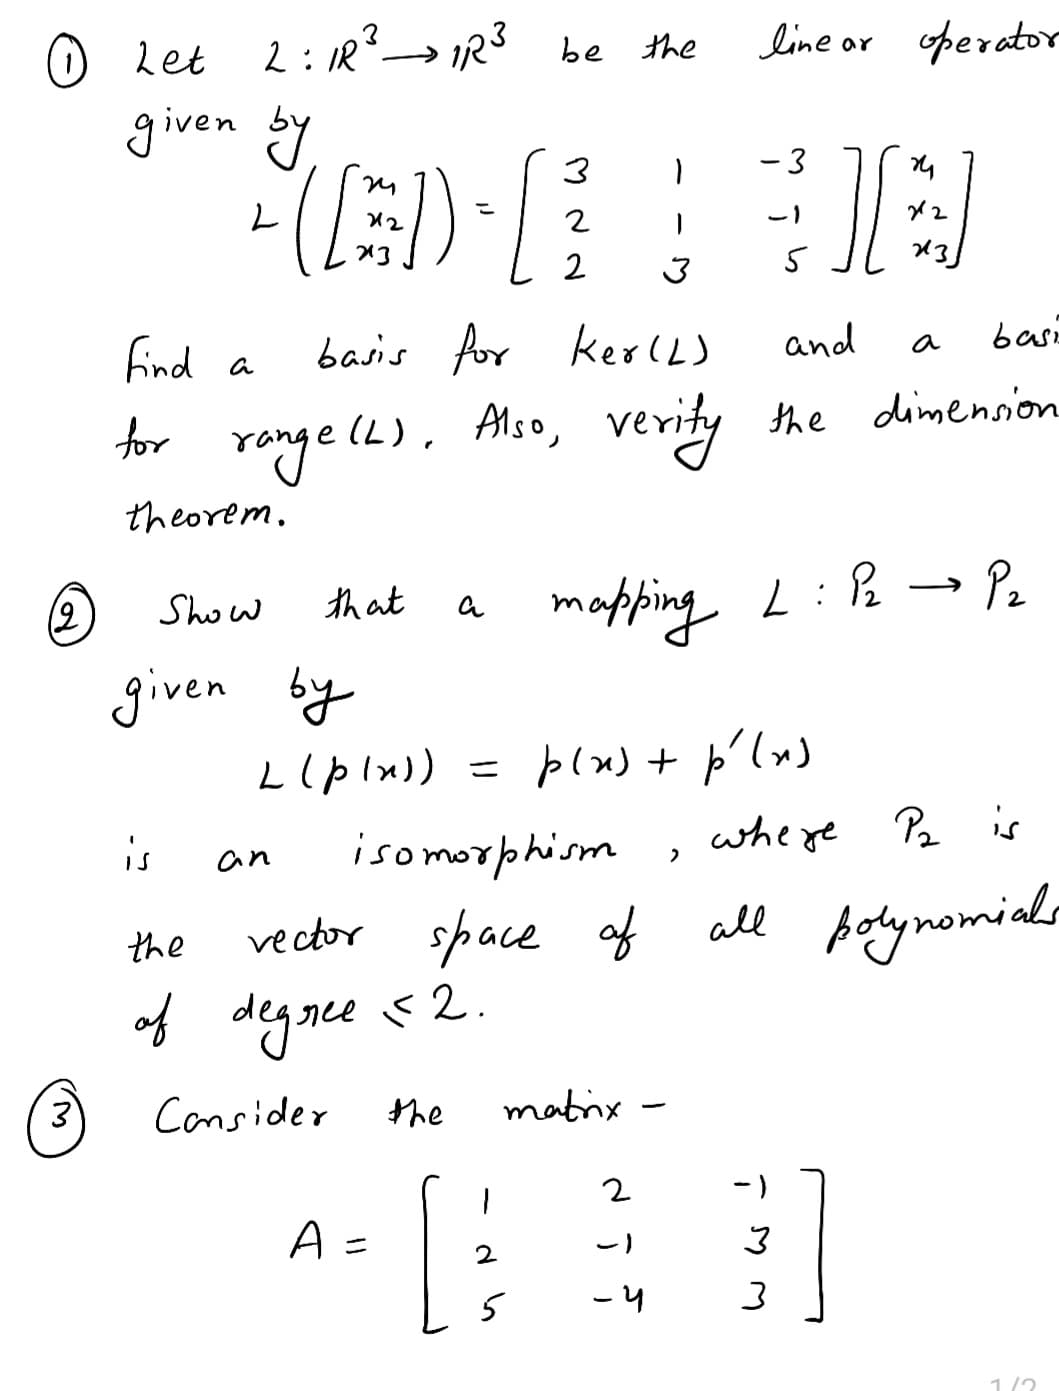 ① Let L : IR³ → IR³ be the linear operator
given by
L([x₁ x₂ x₃]) = [3 1 -3
2 1 -1
2 3 5][x₁ x₂ x₃]
find a basis for ker(L) and a basi
for range(L). Also, verify the dimension
theorem.
② Show that a mapping L : P₂ → P₂
given by
L(p(x)) = p(x) + p'(x)
is an isomorphism, where P₂ is
the vector space of all polynomials
of degree ≤ 2.
③ Consider the matrix -
A = [1 2 -1
2 -1 3
5 -4 3]